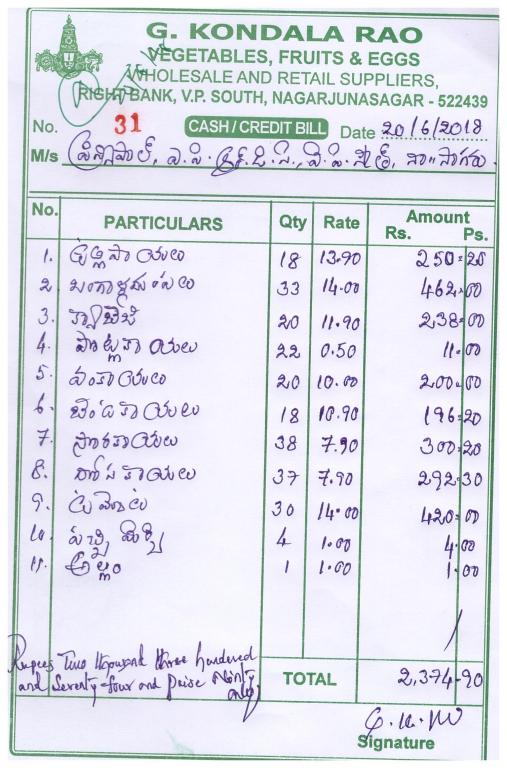 G. KONDALA RAO
VEGETABLES, FRUITS & EGGS
WHOLESALE AND RETAIL SUPPLIERS,
RIGHT BANK, V.P. SOUTH, NAGARJUNASAGAR - 522439
No. 31 CASH / CREDIT BILL Date 20/6/2018
M/s ప్రిన్సిపాల్, ఎ.పి.
No. PARTICULARS Qty Rate Amount Rs. Ps.
1. 18 13.90 250=20
2. బంగాళదుంపలు 33 14.00 462=00
3. క్యాబేజి 20 11.90 238=00
4. పొట్లకాయలు 22 0.50 11.00
5. వంకాయలు 20 10.00 200=00
6. బెండకాయలు 18 10.90 196=20
7. సొరకాయలు 38 7.90 300=20
8. దోసకాయలు 37 7.90 292=30
9. టమోటలు 30 14.00 420=00
10. పచ్చి మిర్చి 4 1.00 4.00
11. అల్లం 1 1.00 1.00
Rupees Two thousand three hundered
and Seventy-four and paise Ninty
only
TOTAL 2,374-90
Signature